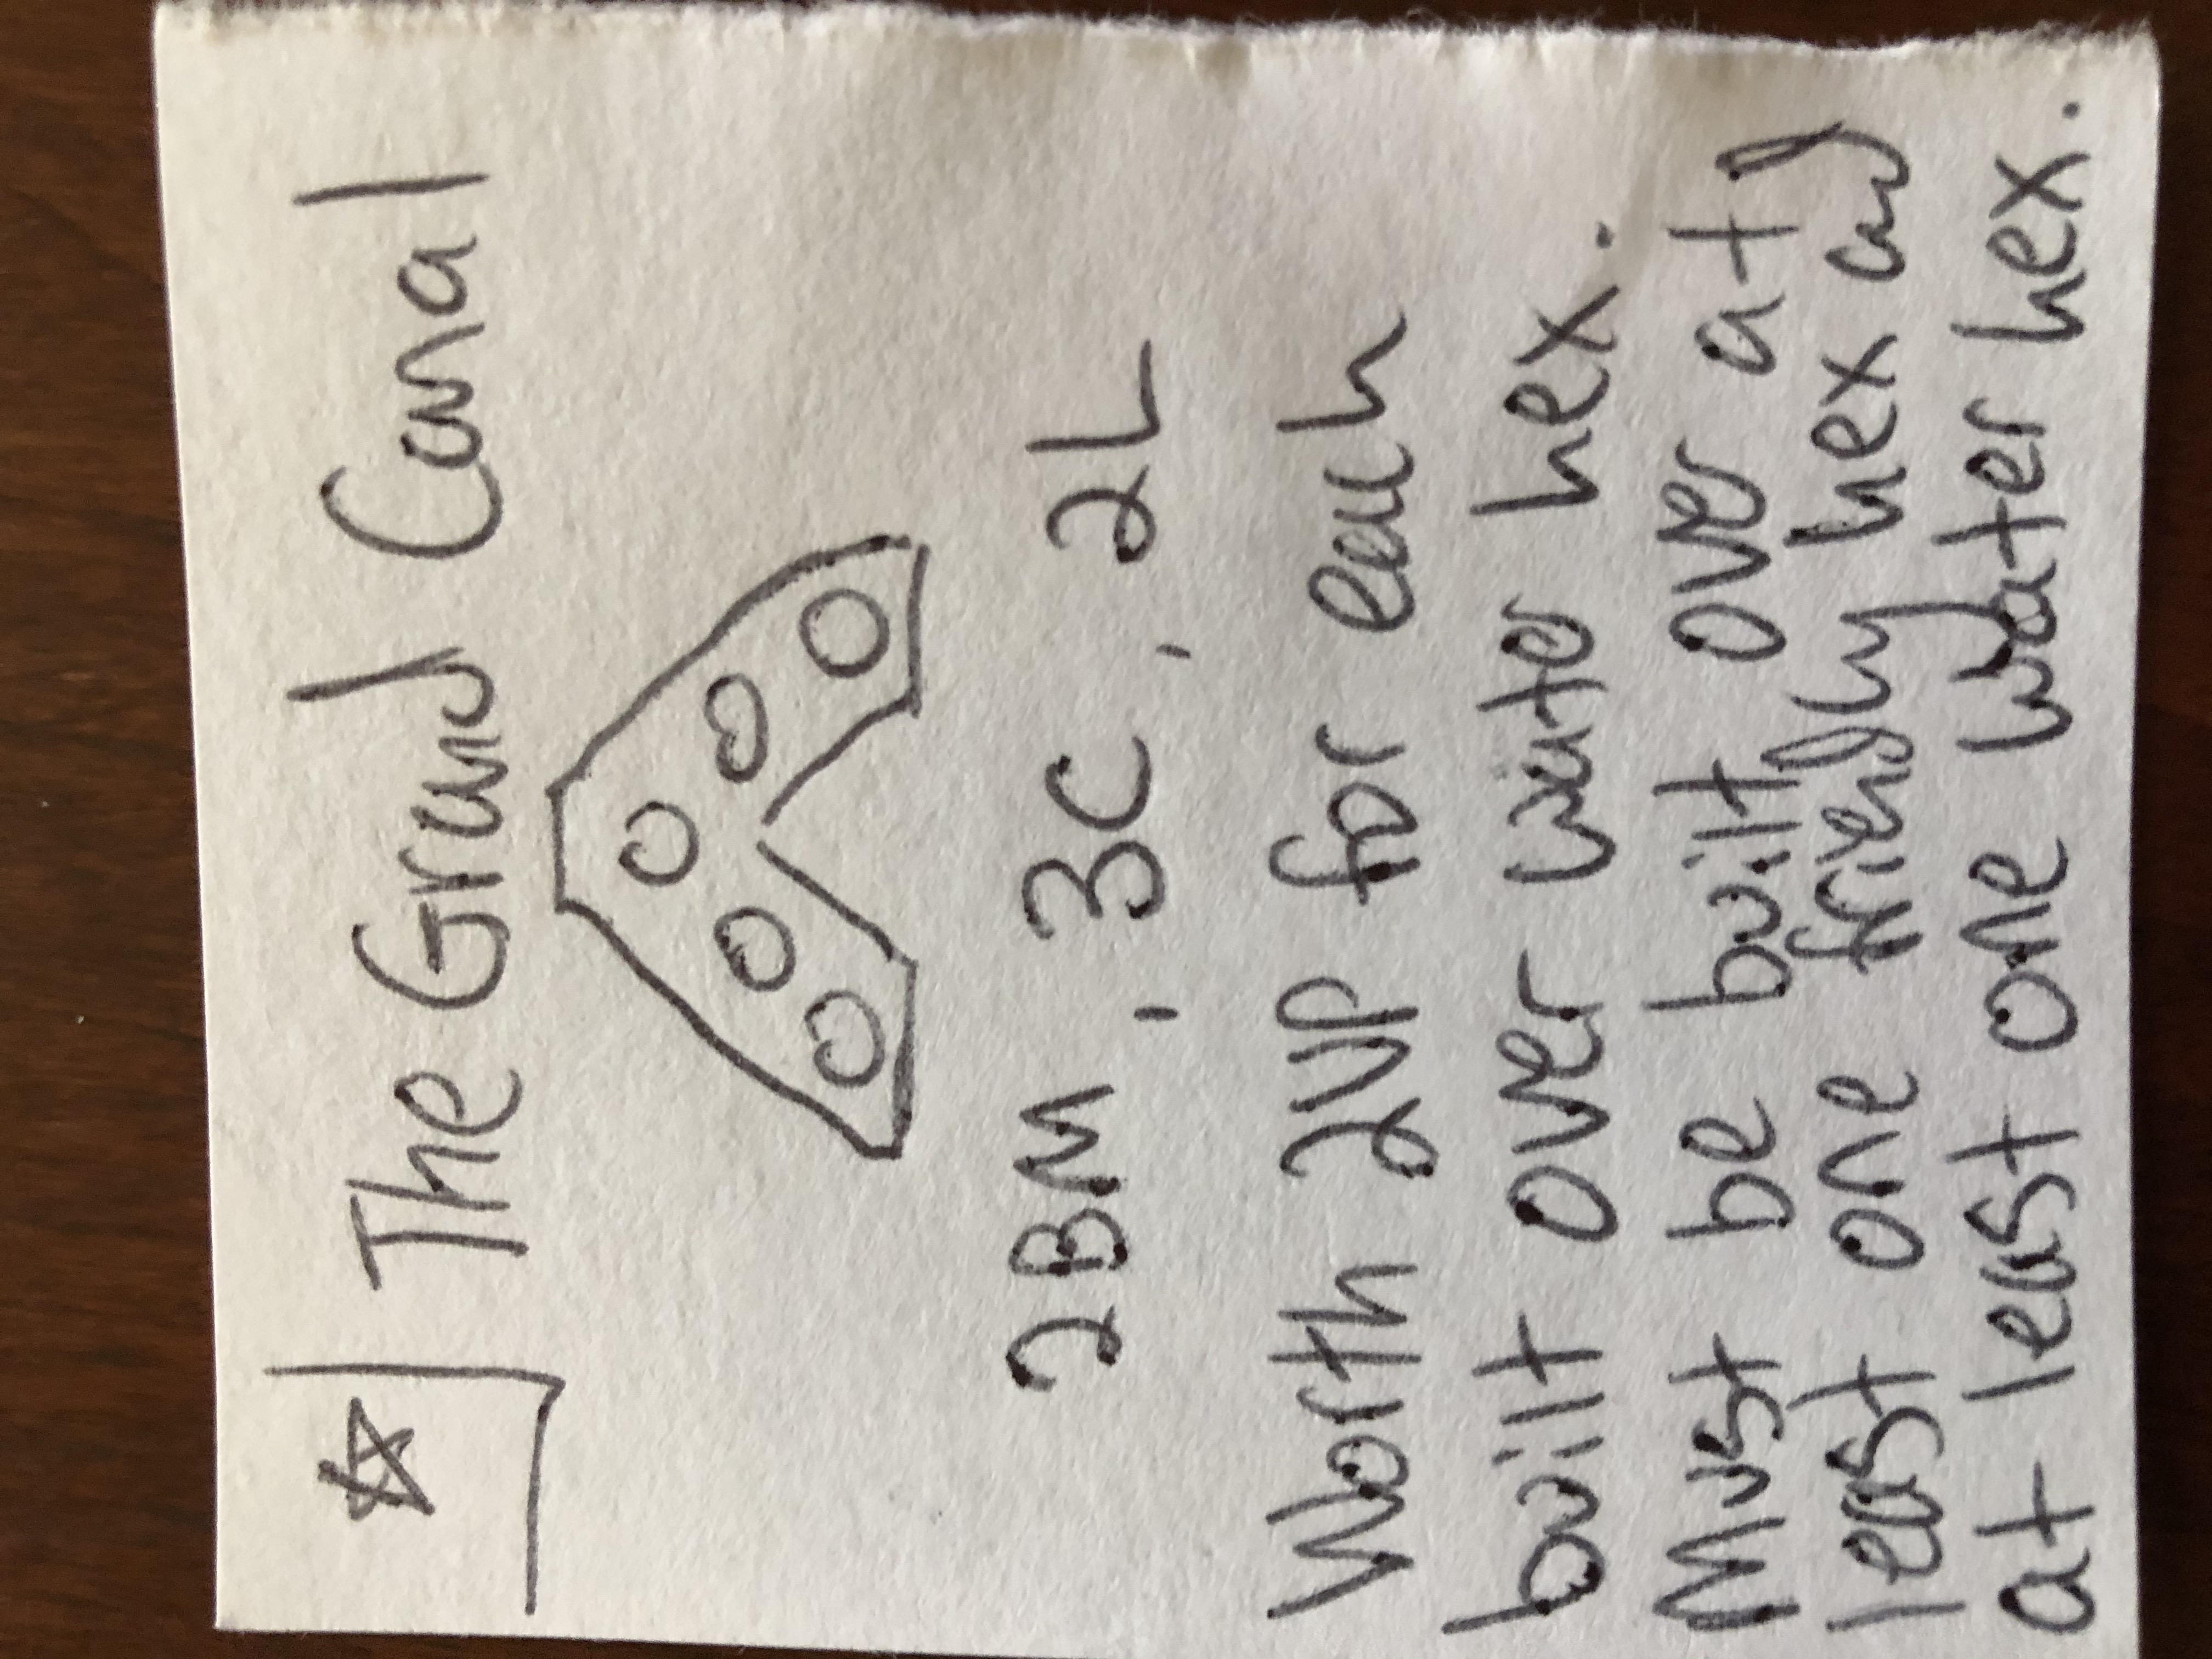 The Grand Canal
2BM, 3C, 2L
Worth 2VP for each
built over water hex.
Must be built over at
least one friendly hex and
at least one water hex.